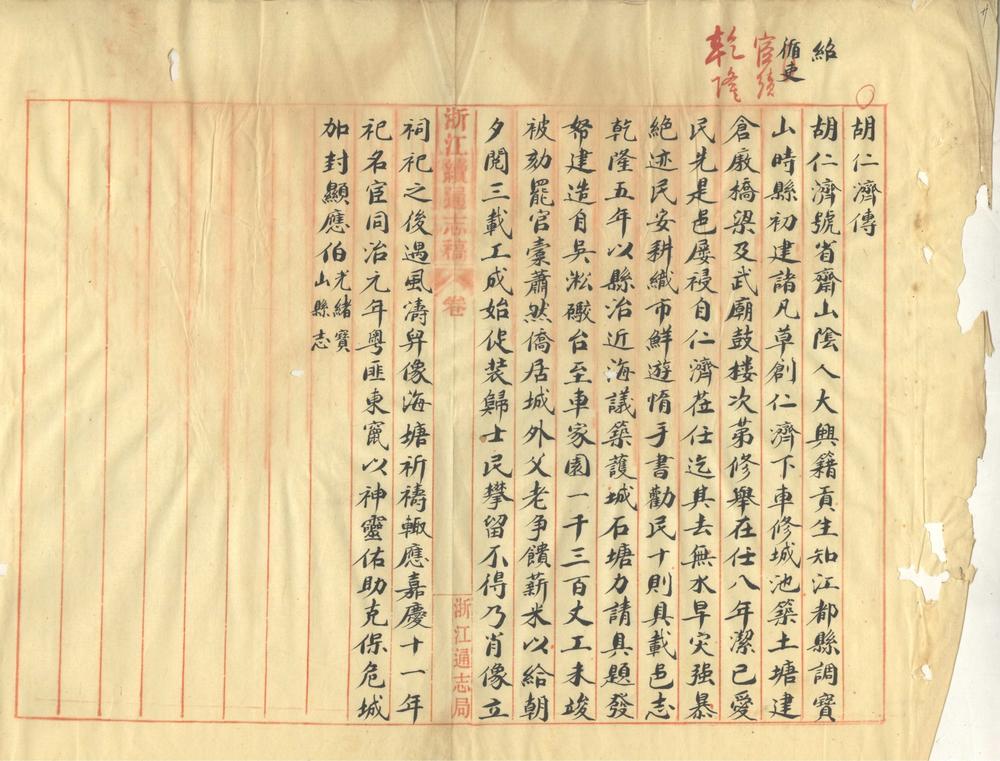 紹
循吏
宦績
乾隆
胡仁濟傳
胡仁濟號省齋山陰人大興籍貢生知江都縣調寶
山時縣初建諸凡草創仁濟下車修城池築土塘建
倉廒橋梁及武廟鼓樓次第修舉在任八年潔己愛
民先是邑屢祲自仁濟莅任迄其去無水旱灾强暴
絶迹民安耕織市鮮遊惰手書勸民十則具載邑志
乾隆五年以縣治近海議築護城石塘力請具題發
帑建造自吳淞礮台至車家園一千三百丈工未竣
被劾罷官槖蕭然僑居城外父老争饋薪米以給朝
夕閲三載工成始促装歸士民攀留不得乃肖像立
浙江續通志稿
卷
浙江通志局
祠祀之後遇風濤舁像海塘祈禱輙應嘉慶十一年
祀名宦同治元年粤匪東竄以神靈佑助克保危城
加封顯應伯光緒寶
山縣志